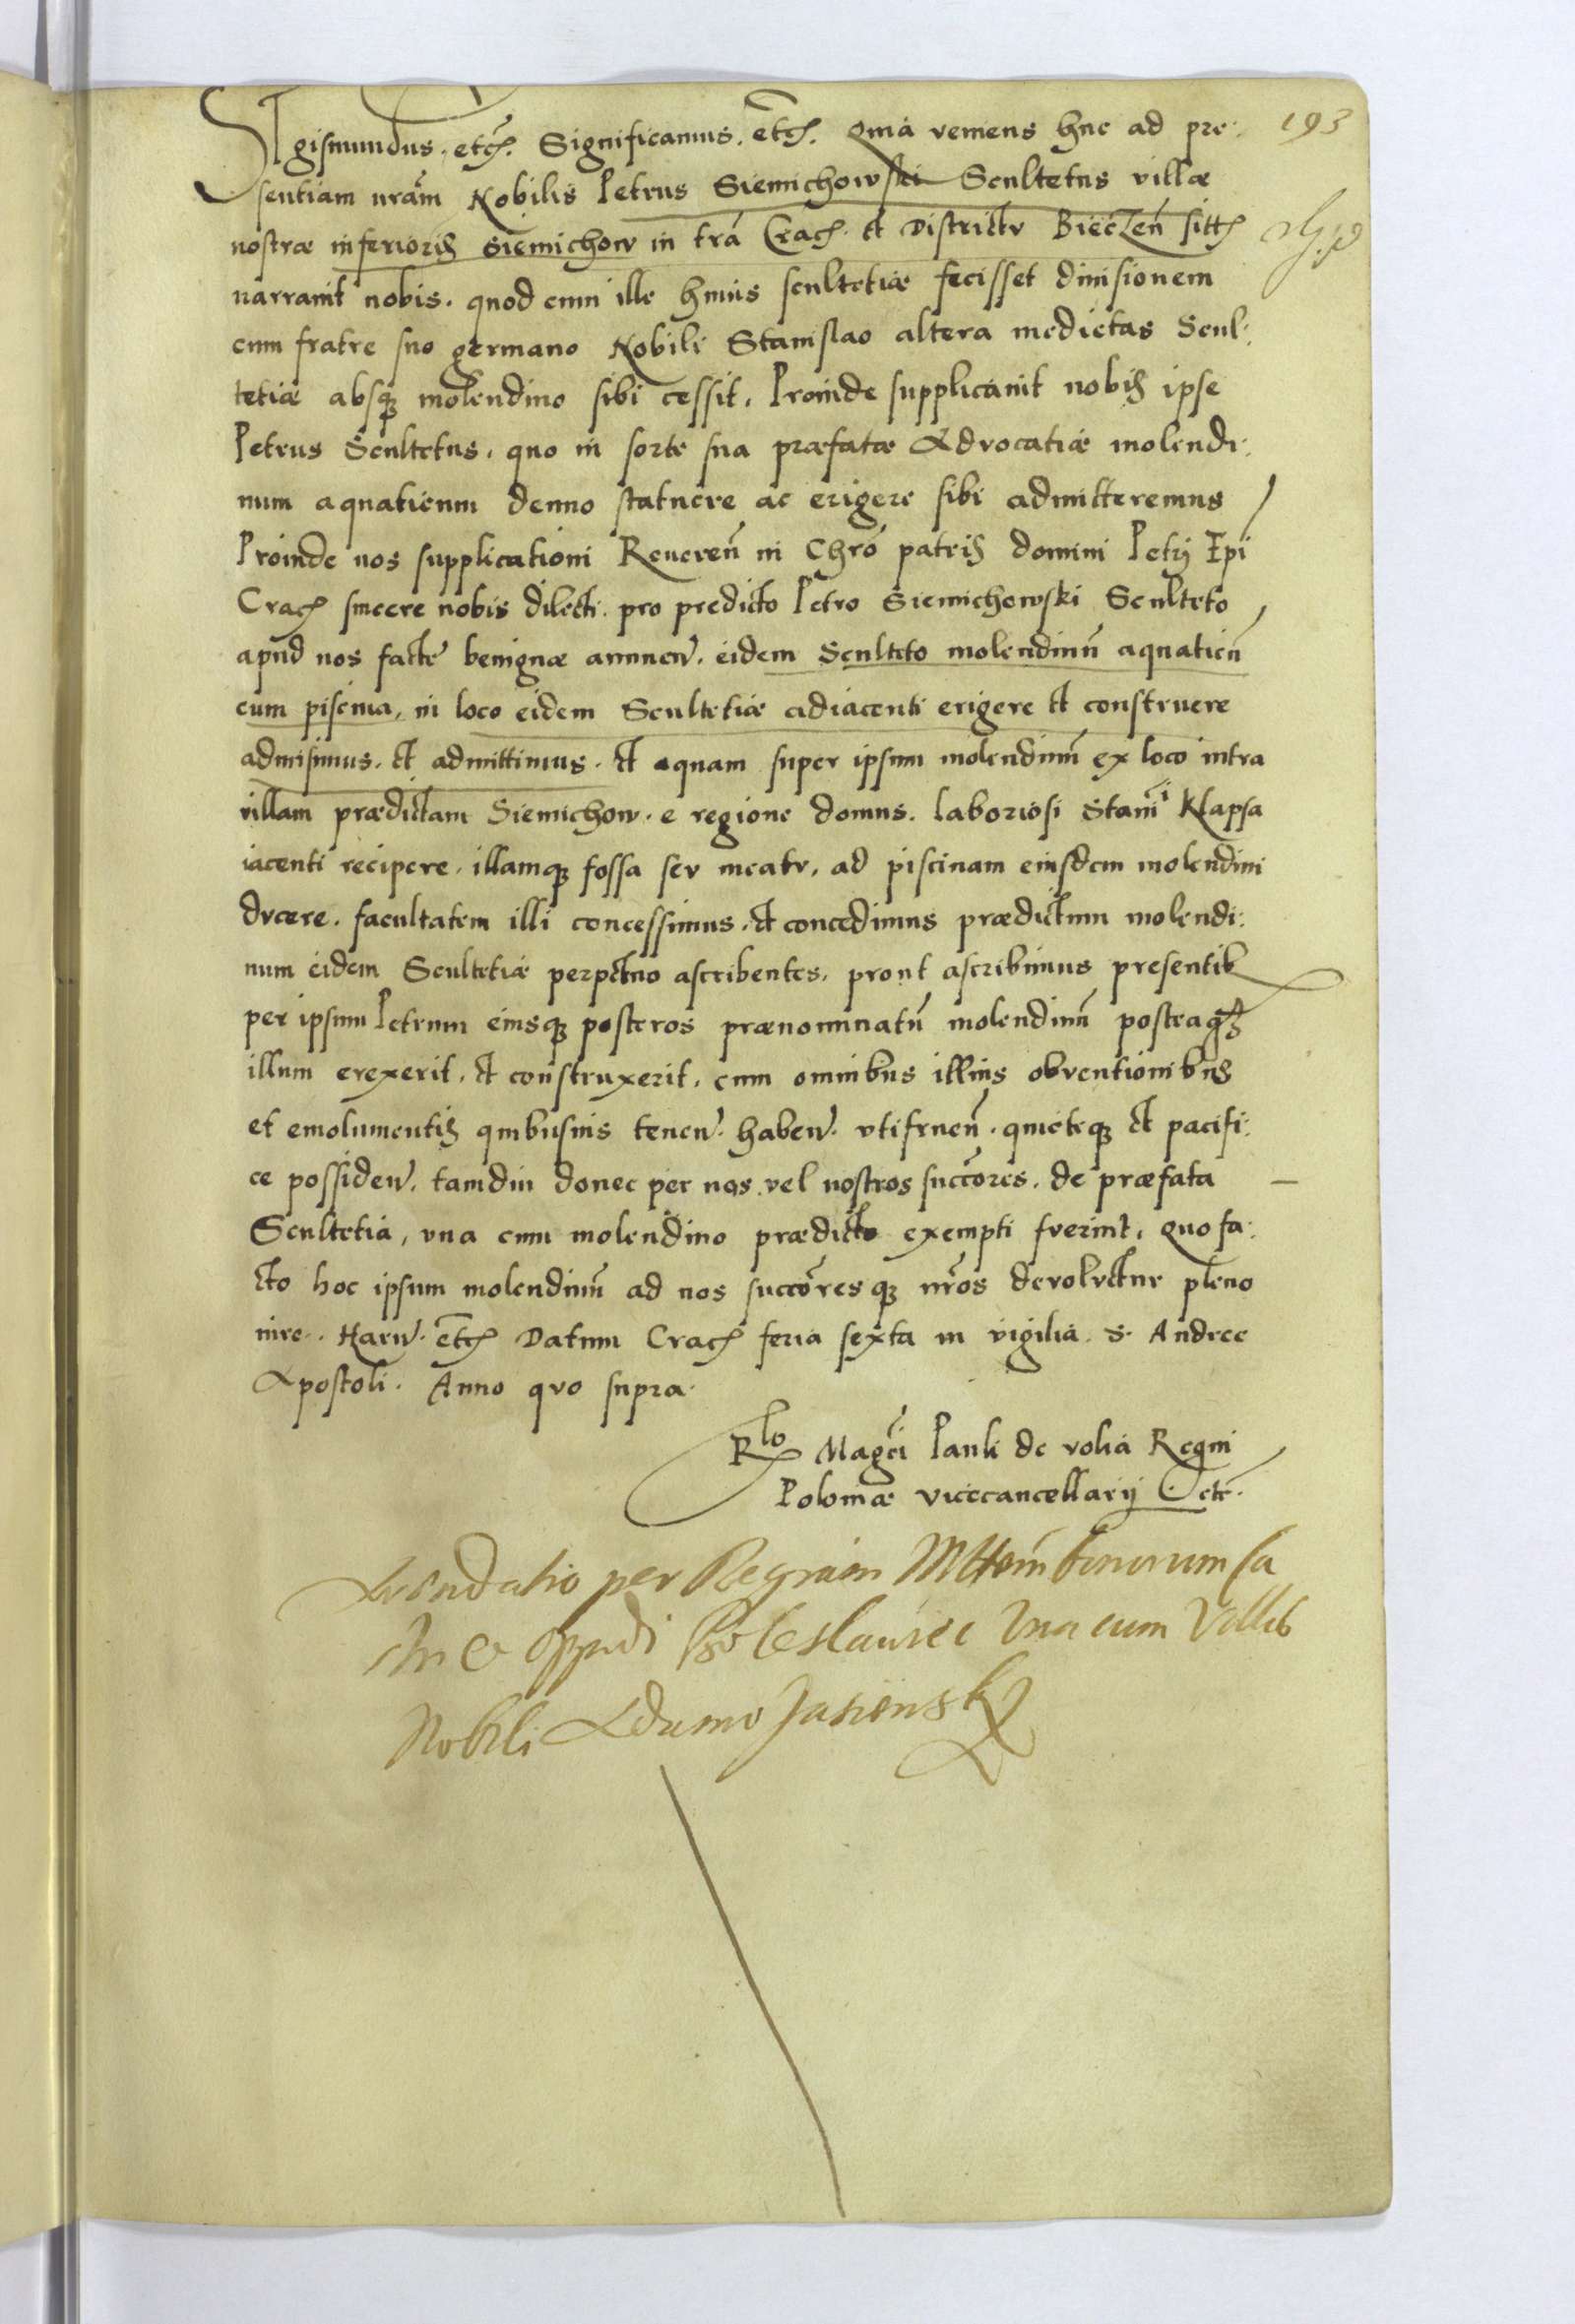 193
SIgismundus. etc̄. Significamus. etc̄. Quia veniens huc ad pre:
sentiam nrām Nobilis Petrus Siemichowski Scultetus villæ
nostræ inferioris Siemichow in trā Crac. et Districtu Bieczeń sitæ
narravit nobis. quod cum ille huius scultetiæ fecisset divisionem
cum fratre suo germano Nobili Stanislao altera medietas Scul:
tetiæ absq molendino sibi cessit. Proinde supplicavit nobis ipse
Petrus Scultetus, quo in sorte sua præfatæ Advocatiæ molendi:
num aquaticum denuo statuere ac erigere sibi admitteremus
Proinde nos supplicationi Reveren̄ in Chro patris domini Petri Epi
Crac sincere nobis dilecti. pro predicto Petro Siemichowski Sculteto
apud nos facte benignæ annuen. eidem Sculteto molendinū aquaticū
cum piscina, in loco eidem Scultetiæ adiacenti erigere et construere
admisimus. et admittimus. et aquam super ipsum molendinū ex loco intra
villam prædictam Siemichow. e regione domus. laboriosi Stani Klapsa
iacenti recipere. illamq fossa seu meatu, ad piscinam eiusdem molendini
ducere. facultatem illi concessimus. et concedimus prædictum molendi:
num eidem Scultetiæ perpetuo ascribentes, prout ascribimus presentib
per ipsum Petrum eiusq posteros prænominatū molendinū posteaq
illum erexerit. et construxerit. cum omnibus illius obventionibus
et emolumentis quibusvis tenen. haben. utifruen̄. quieteq et pacifi:
ce possiden. tamdiu donec per nos vel nostros succōres. de præfata
Scultetia, una cum molendino prædicto exempti fuerint, quo fa:
cto hoc ipsum molendinū ad nos succōresq nrōs devolvetur pleno
iure. Harū. etc̄ Datum Crac feria sexta in vigilia. S. Andree
Apostoli. Anno quo supra.
Rlo Magci Pauli de volia Regni
Poloniæ vicecancellarij etc.
Arendatio per Reginam Mttem bonorum Ca
Oppidi Boleslauiec Una cum Villis
Nobili Adamo Jasiensky